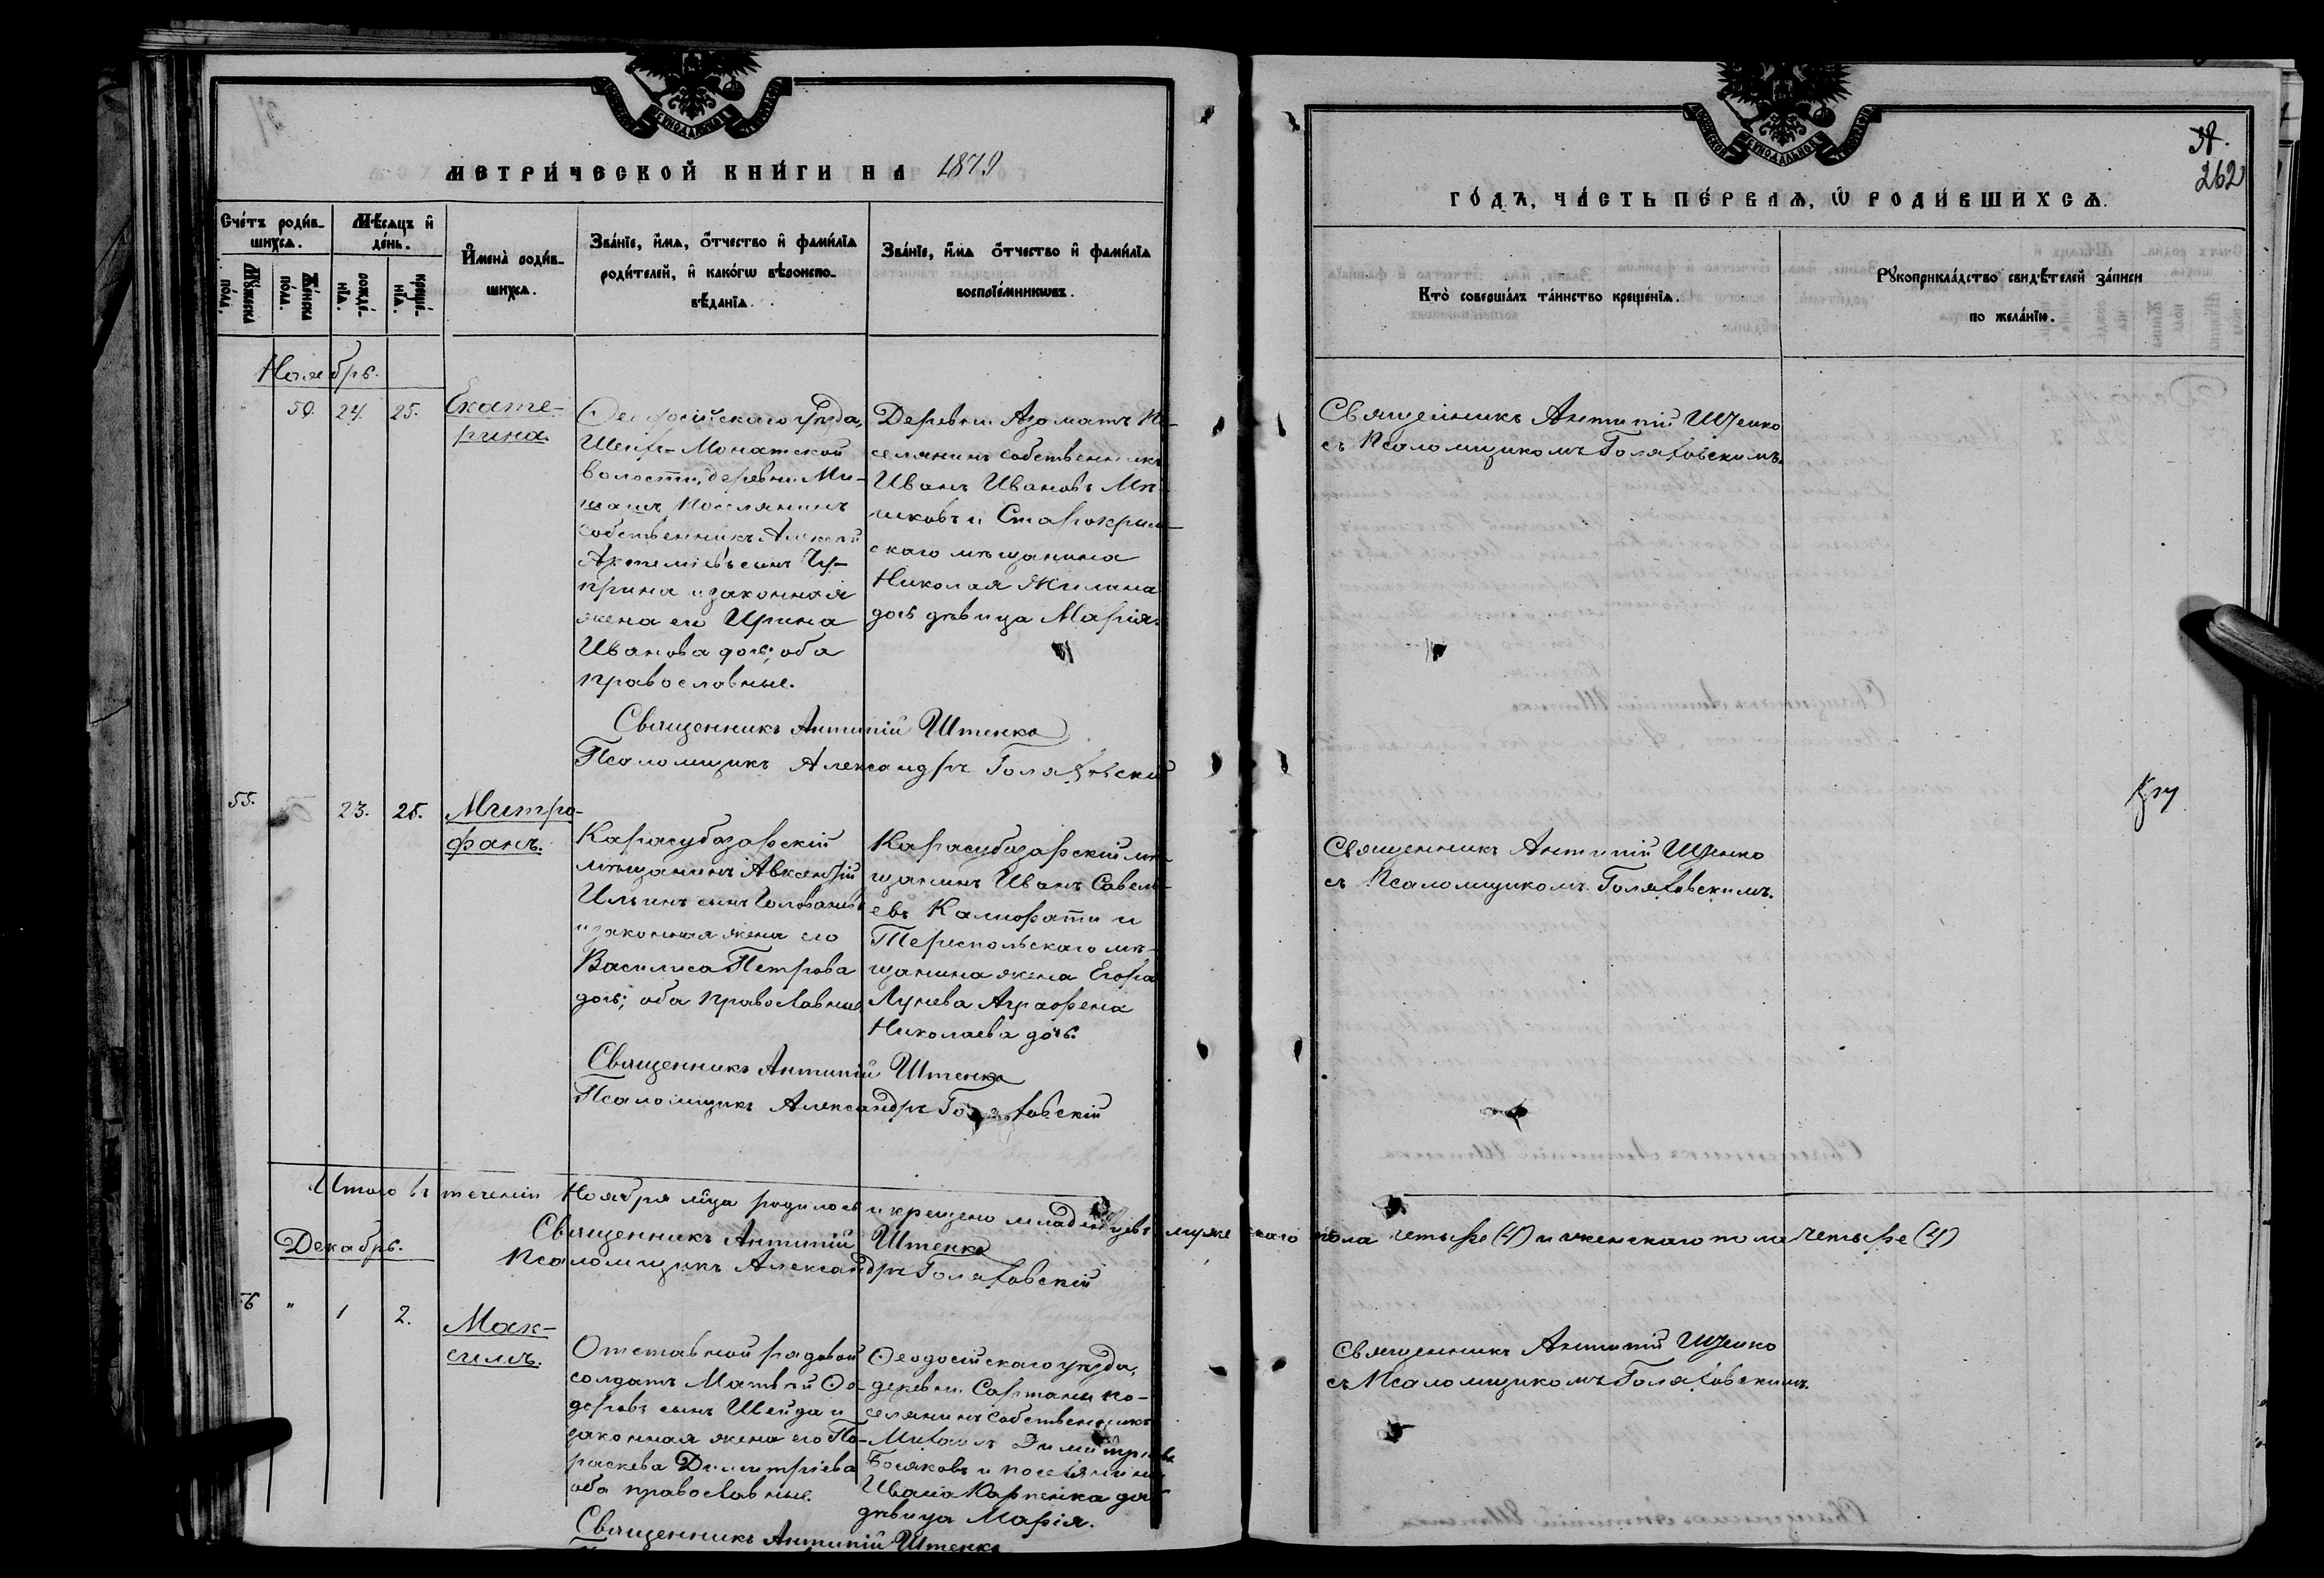 МЕТРИ́ЧЕСКОЙ КНИ́ГИ НА 1879
Сче́тъ роди́в-
шихсѧ.
Мѣ́сѧцъ и҆
де́нь.
Мꙋ́жеска
по́ла.
Же́нска
по́ла.
рожде́-
нїѧ.
креще́-
нїѧ.
И҆мена̀ роди́в-
шихсѧ.
Зва́нїе, и҆́мѧ, ѻ҆́тчество и҆ фами́лїѧ
роди́телей, и҆ како́гѡ вѣроиспо-
вѣ́данїѧ.
Зва́нїе, и҆́мѧ ѻ҆́тчество и҆ фами́лїѧ
воспрїе́мникѡвъ.
Ноябрь.
50. 24. 25.
Екате-
рина.
Ѳеодосійскаго уѣзда,
Шейхъ-Монатской
волости, деревни Ми-
шашъ поселянинъ
собственникъ Алексѣй
Артеміевъ сынъ Чу-
прина и законная
жена его Ирина
Иванова дочь; оба
православные.
Деревни Азоматъ По-
селянинъ собственникъ
Иванъ Ивановъ
и Старокрым-
скаго мѣщанина
Николая Жилина
дочь дѣвица Марія.
Священникъ Антипій Штенко
Псаломщикъ Александръ Голяховскій
55. 23. 25.
Митро-
фанъ.
Карасубазарскій
мѣщанинъ Авксентій
Ильинъ сынъ
и законная жена его
Василиса Петрова
дочь; оба православные
Карасубазарскій мѣ-
щанинъ Иванъ Савель-
евъ и
Тереспольскаго мѣ-
щанина жена Егора
Лунева Аграфена
Николаева дочь.
Священникъ Антипій Штенко
Псаломщикъ Александръ Голяховскій
Итого въ теченіи Ноября мца родилось и крещено младенцевъ мужескаго пола четыре (4) и женскаго пола четыре (4)
Священникъ Антипій Штенко
Псаломщикъ Александръ Голяховскій
Декабрь.
56 " 1 2.
Мак-
симъ.
Отставной рядовой
солдатъ Матвѣй Ѳе-
доровъ сынъ Швейда и
законная жена его Па-
раскева Димитріева
оба православные.
Ѳеодосійскаго уѣзда,
деревни Сартаны по-
селянинъ собственникъ
Михаилъ Димитріевъ
и поселянина
Ивана Карпенка дочь
дѣвица Марія.
Священникъ Антипій Штенко
38.
262
ГО́ДЪ, ЧА́СТЬ ПЕ́РВАѦ, Ѽ РОДИ́ВШИХСѦ.
Кто̀ соверша́лъ та́инство креще́нїѧ.
Рꙋкоприкла́дство свидѣ́телей за́писи
по жела́нїю.
Священникъ Антипій Штенко
съ Псаломщикомъ Голяховскимъ.
Священникъ Антипій Штенко
съ Псаломщикомъ Голяховскимъ.
Священникъ Антипій Штенко
съ Псаломщикомъ Голяховскимъ.